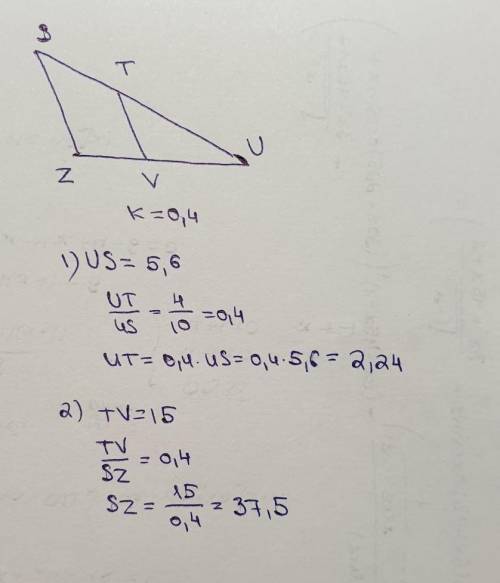 S
T
U
Z
V
K = 0,4
1) US = 5,6
UT/US = 4/10 = 0,4
UT = 0,4 · US = 0,4 · 5,6 = 2,24
2) TV = 15
TV/SZ = 0,4
SZ = 15/0,4 = 37,5